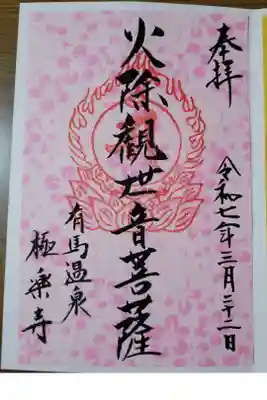 奉拝
令和七年三月二十二日
火除観世音菩薩
有馬温泉
極楽寺